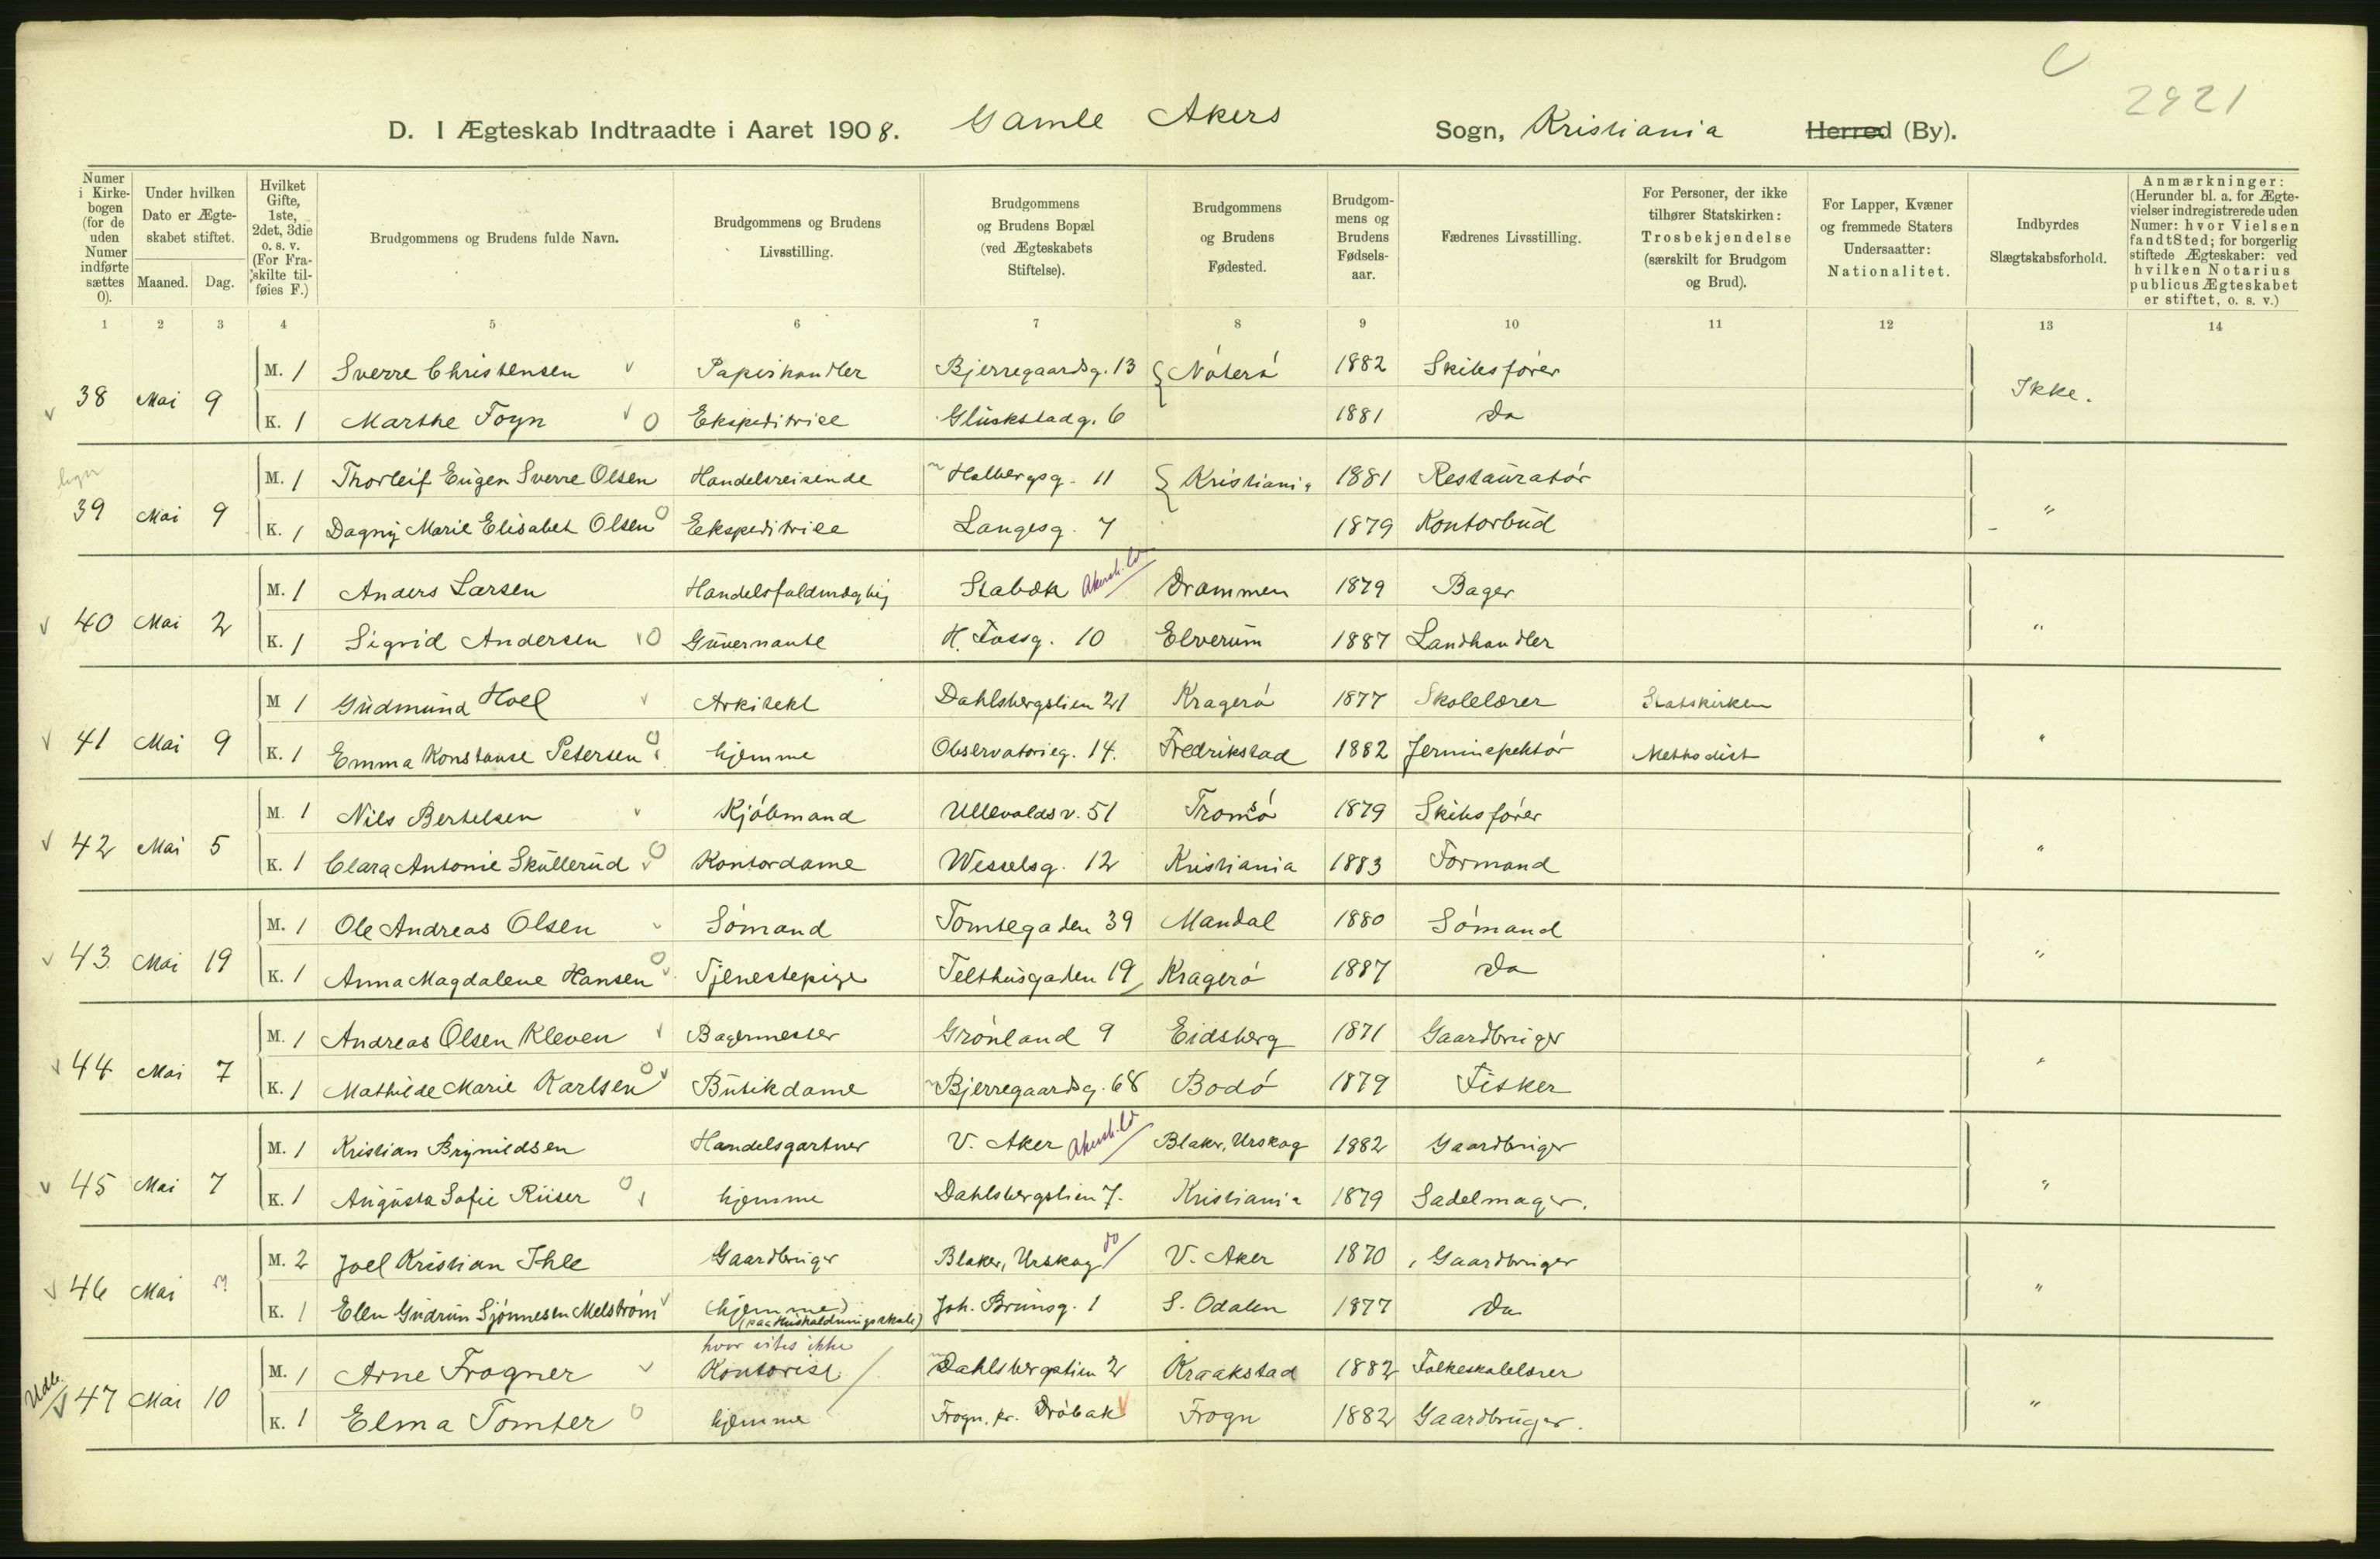 C
2921
D. I Ægteskab Indtraadte i Aaret 1908. Gamle Akers Sogn, Kristiania Herred (By).
Numer i Kirkebogen (for de uden Numer indførte sættes 0).
Under hvilken Dato er Ægteskabet stiftet.
Maaned. Dag.
Hvilket Gifte, 1ste, 2det, 3die o. s. v. (For Fraskilte tilføies F.)
Brudgommens og Brudens fulde Navn.
Brudgommens og Brudens Livsstilling.
Brudgommens og Brudens Bopæl (ved Ægteskabets Stiftelse).
Brudgommens og Brudens Fødested.
Brudgommens og Brudens Fødselsaar.
Fædrenes Livsstilling.
For Personer, der ikke tilhører Statskirken: Trosbekjendelse (særskilt for Brudgom og Brud).
For Lapper, Kvæner og fremmede Staters Undersaatter: Nationalitet.
Indbyrdes Slægtskabsforhold.
Anmærkninger: (Herunder bl. a. for Ægtevielser indregistrerede uden Numer: hvor Vielsen fandt Sted; for borgerlig stiftede Ægteskaber: ved hvilken Notarius publicus Ægteskabet er stiftet, o. s. v.)
1 2 3 4 5 6 7 8 9 10 11 12 13 14
M. 1 Sverre Christensen Papirhandler Bjerregaardsg. 13 Nøterø 1882 Skibsfører
38 Mai 9 Ikke.
K. 1 Marthe Foyn Ekspeditrice Glückstadg. 6 1881 Do
M. 1 Thorleif Eugen Sverre Olsen Handelsreisende Holbergsg. 11 Kristiania 1881 Restauratør
39 Mai 9 "
K. 1 Dagny Marie Elisabet Olsen Eekspeditrice Langesg. 7 1879 Kontorbud
M. 1 Anders Larsen Handelsfuldmægtig Stabæk Drammen 1879 Bager
40 Mai 2 "
K. 1 Sigrid Andersen Guvernante H. Fossg. 10 Elverum 1887 Landhandler
M 1 Gudmund Hoel Arkitekt Dahlsbergstien 21 Kragerø 1877 Skolelærer Statskirken
41 Mai 9 "
K. 1 Emma Konstanse Petersen hjemme Observatorieg. 14. Fredrikstad 1882 Jerninspektør Methodist
M. 1 Nils Bertelsen Kjøbmand Ullevoldsv. 51 Tromsø 1879 Skibsfører
42 Mai 5 "
K. 1 Clara Antonie Skullerud Kontordame Wesselsg. 12 Kristiania 1883 Formand
M. 1 Ole Andreas Olsen Sømand Tomtegaden 39 Mandal 1880 Sømand
43 Mai 19 "
K. 1 Anna Magdalene Hansen Tjenestepige Telthusgaden 19 Kragerø 1887 Do
M. 1 Andreas Olsen Kleven Bagermester Grønland 9 Eidsberg 1871 Gaardbruger
44 Mai 7 "
K. 1 Mathilde Marie Karlsen Butikdame Bjerregaardsg. 68 Bodø 1879 Fisker
M. 1 Kristian Brynildsen Handelsgartner V. Aker Blaker, Urskog 1882 Gaardbruger
45 Mai 7 "
K. 1 Augusta Sofie Riiser hjemme Dahlsbergstien 7. Kristiania 1879 Sadelmager.
M. 2 Joel Kristian Ihle Gaardbruger Blaker, Urskog do V. Aker 1870 Gaardbruger
46 Mai "
K. 1 Elen Gudrun Sjønnesen Melstrøm (hjemme) (paa Husholdningsskole) Joh. Brunsg. 1 S. Odalen 1877 Do
hvor vites ikke
M. 1 Arne Frogner Kontorist Dahlsbergstien 2 Kraakstad 1882 Folkeskolelærer
Udb. 47 Mai 10 "
K. 1 Elma Tomter hjemme Frogn, pr. Drøbak Frogn 1882 Gaardbruger.